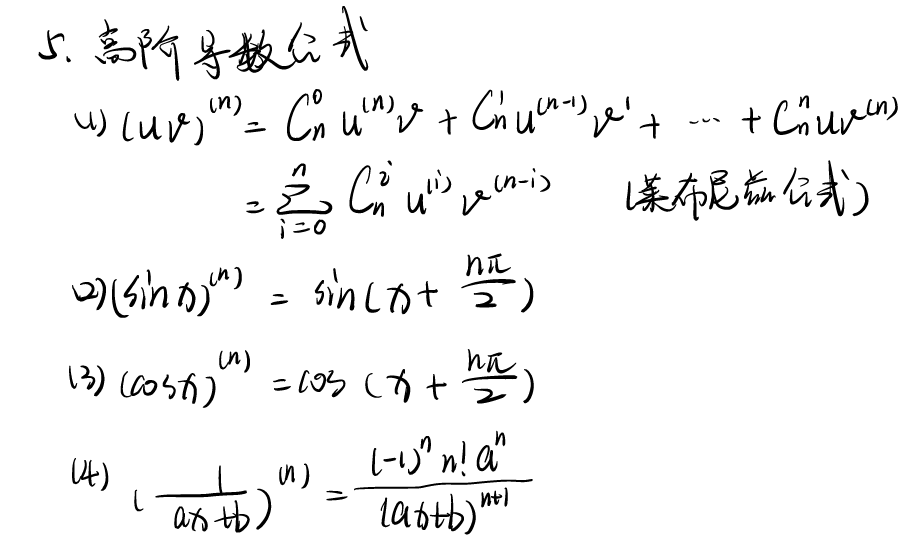 5. 高阶导数公式
(1) (uv)^{(n)} = C_n^0 u^{(n)}v + C_n^1 u^{(n-1)}v' + ⋯ + C_n^n uv^{(n)}
= \sum_{i=0}^{n} C_n^i u^{(i)} v^{(n-i)} (莱布尼兹公式)
(2) (sin x)^{(n)} = sin(x + \frac{nπ}{2})
(3) (cos x)^{(n)} = cos(x + \frac{nπ}{2})
(4) (\frac{1}{ax+b})^{(n)} = \frac{(-1)^n n! a^n}{(ax+b)^{n+1}}